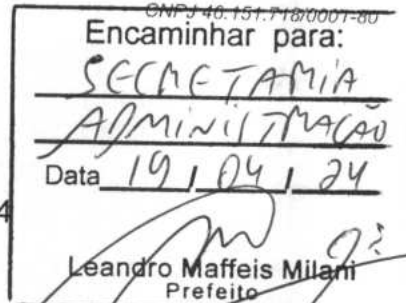 CNPJ 46.151.718/0001-80
Encaminhar para:
SECRETARIA
ADMINISTRAÇÃO
Data 19 / 04 / 24
4
Leandro Maffeis Milani
Prefeito